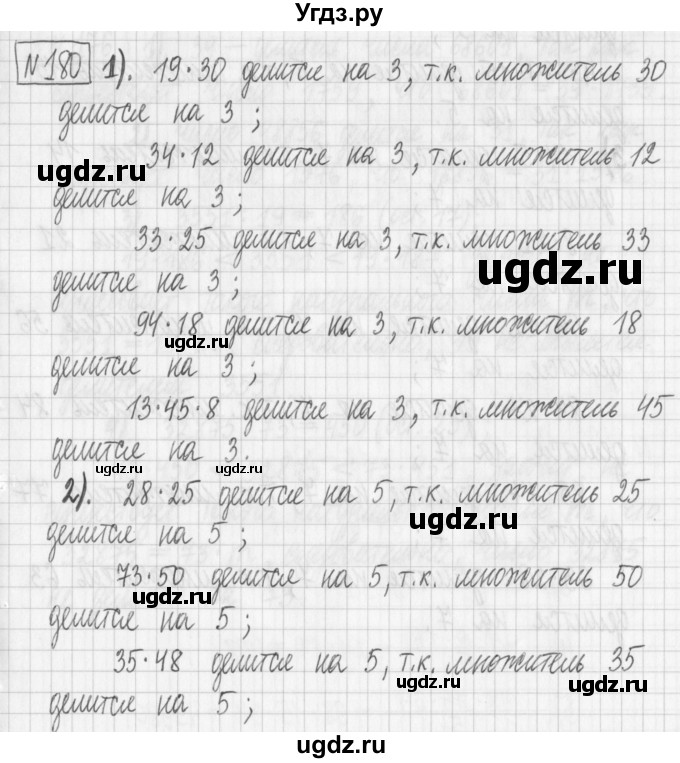 Угдз.ру
№180 1). 19·30 делится на 3, т.к. множитель 30
делится на 3;
34·12 делится на 3, т.к. множитель 12
ugdz.ru
делится на 3;
33·25 делится на 3, т.к. множитель 33
ugdz.ru
делится на 3;
94·18 делится на 3, т.к. множитель 18
ugdz.ru
делится на 3;
13·45·8 делится на 3, т.к. множитель 45
делится на 3.
ugdz.ru ugdz.ru
2). 28·25 делится на 5, т.к. множитель 25
ugdz.ru
делится на 5;
73·50 делится на 5, т.к. множитель 50
ugdz.ru
делится на 5;
35·48 делится на 5, т.к. множитель 35
ugdz.ru ugdz.ru
делится на 5;
ugdz.ru